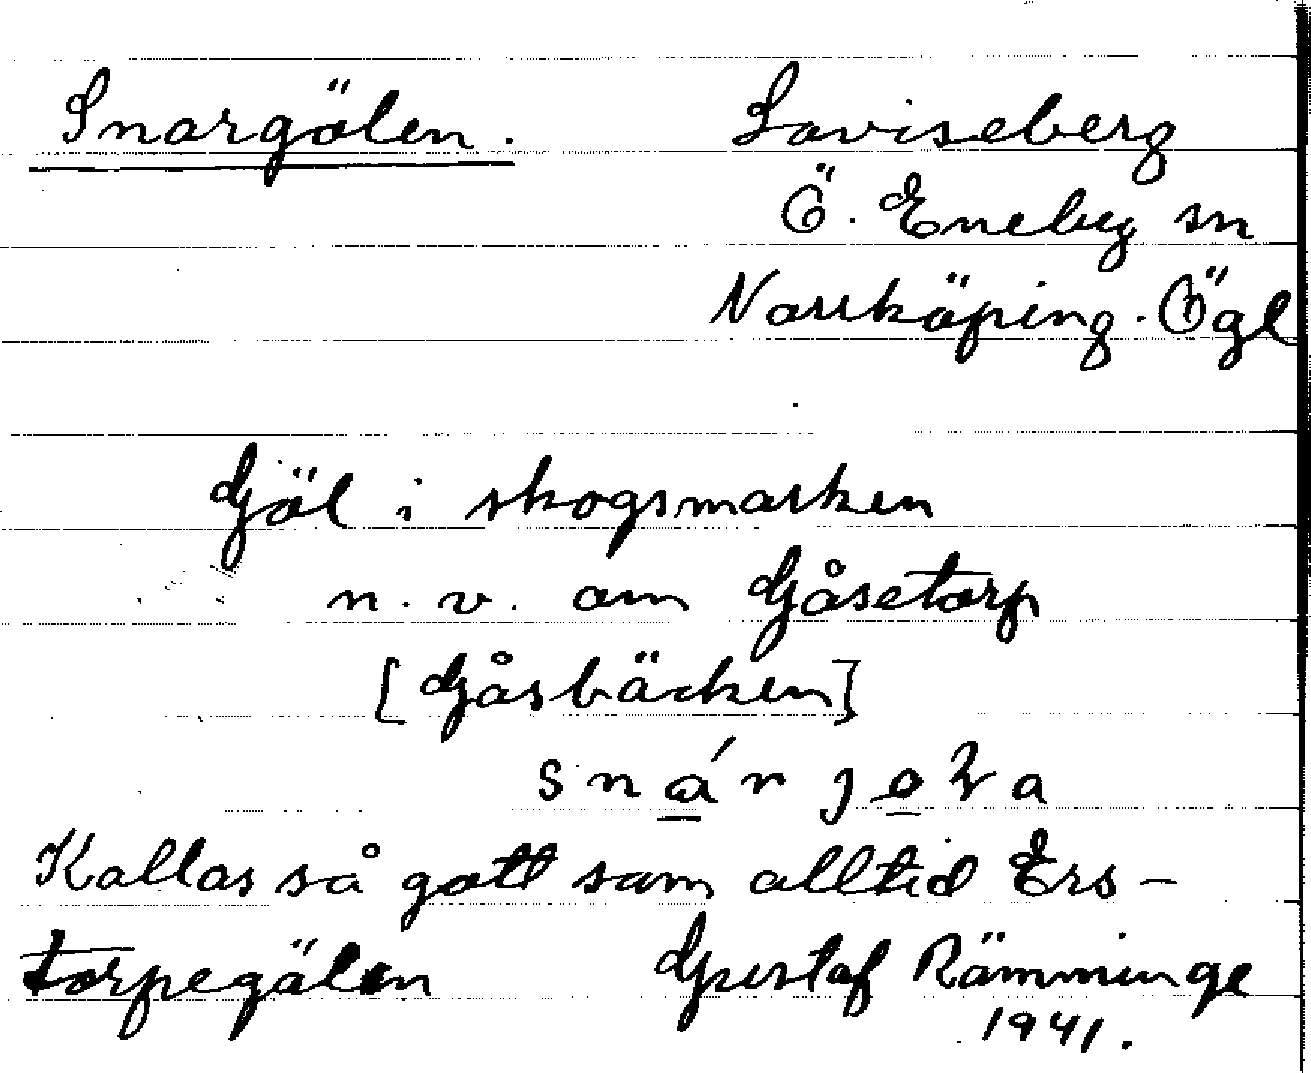 Snargölen. Loviseberg
Ö. Eneby sn
Norrköping. Ögl
Göl i skogsmarken
n.v. om Gåsetorp
[Gåsbäcken]
Kallas så gott som alltid Ers-
torpegölen Gustaf Rämminge
1941.